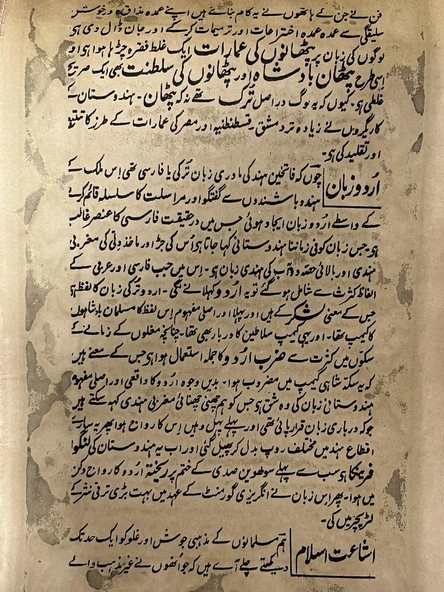 فن نے جن کے ہاتھوں نے یہ کام بنائے ہیں اپنے عمدہ مذاق اور خوش
سلیقگی سے عمدہ اختراعات اور ترمیمات کرکے اور جان ڈال دی ہو
لوگوں کی زبان پر پٹھانوں کی عمارات ایک غلط فقرہ چڑھا ہوا ہی اور
اسی طرح پٹھان بادشاہ اور پٹھانوں کی سلطنت بھی ایک صریح
غلطی ہو۔ کیوں کہ یہ لوگ دراصل ترک تھے نہ کہ پٹھان۔ ہندوستان کے
کاریگروں نے زیادہ تر دمشق، قسطنطنیہ اور مصر کی عمارات کے طرز کا تتبع
اور تقلید کی ہو۔
اردو زبان
چوں کہ فاتحین ہند کی مادری زبان ترکی یا فارسی تھی اس ملک کے
ہندو باشندوں سے گفتگو اور مراسلت کا سلسلہ قائم کرنے
کے واسطے اردو زبان ایجاد ہوئی جس میں درحقیقت فارسی کا عنصر غالب
ہو۔ جس زبان کو فی زماننا ہندوستانی کہا جاتا ہی اس کی جڑ اور ماخذ دلی کی مغربی
ہندی اور بالائی حصہ دوآب کی ہندی زبان ہو۔ اس میں جب فارسی اور عربی کے
الفاظ کثرت سے شامل ہوگئے تو یہ اردو کہلانے لگی۔ اردو ترکی زبان کا لفظ ہو
جس کے معنی لشکر کے ہیں اور پہلا اور اصلی مفہوم اس لفظ کا مسلمان بادشاہوں
کا کیمپ تھا۔ اور یہی کیمپ سلاطین کا دربار بھی تھا۔ چنانچہ مغلوں کے زمانے کے
سکوں میں کثرت سے ضرب اردو کا جملہ استعمال ہوا ہی جس کے معنے ہیں
کہ یہ سکہ شاہی کیمپ میں مضروب ہوا۔ بدیں وجوہ اردو کا واقعی اور اصلی مفہوم
ہندوستانی زبان کی وہ شق ہی جس کو ہم چھنی چھنائی مغربی ہندی کہہ سکتے ہیں
جو کہ درباری زبان قرار پائی تھی اور پہلے پہل وہیں اس کا رواج ہوا پھر یہ سارے
اقطاع ہند میں مختلف روپ بدل کر پھیل گئی اور اب یہ ہندوستان کی لنگوا
فرینکا ہی سب سے پہلے سولھویں صدی کے ختم پر ریختہ اردو کا رواج دکن
میں ہوا۔ پھر اس زبان نے انگریزی گورنمنٹ کے عہد میں بہت بڑی ترقی نثر کے
لٹریچر میں کی۔
اشاعت اسلام
ہم مسلمانوں کے مذہبی جوش اور غلو کو ایک حد تک
دیکھتے چلے آئے ہیں کہ جو انھوں نے غیر مذہب والے